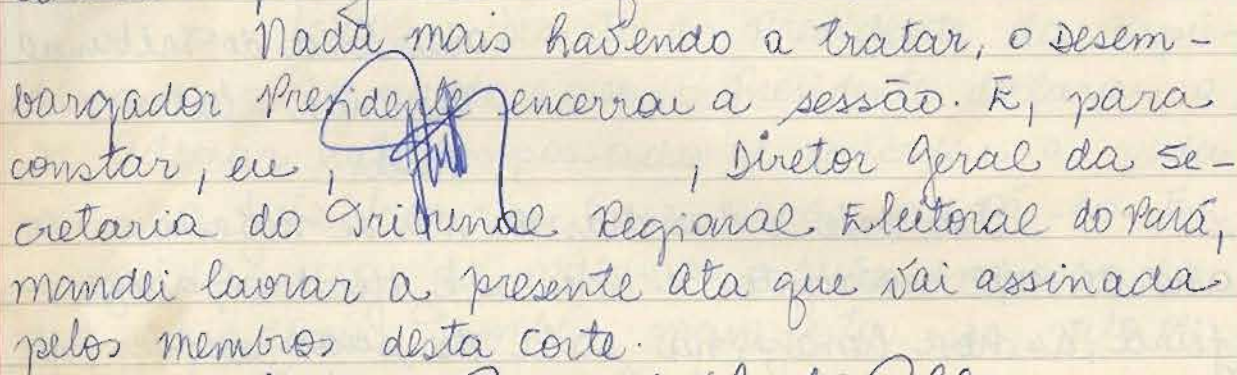 Nada mais havendo a tratar, o Desem-
bargador Presidente encerrou a sessão. E, para
constar, eu, , Diretor Geral da Se-
cretaria do Tribunal Regional Eleitoral do Pará,
mandei lavrar a presente ata que vai assinada
pelos membros desta Corte.